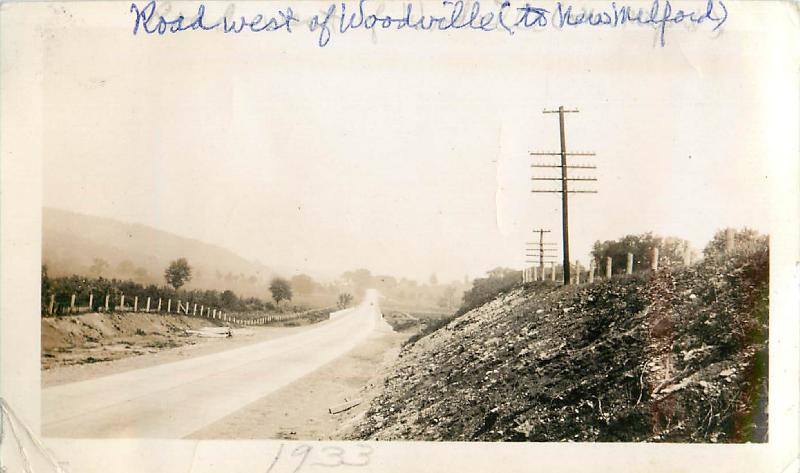 Road west of Woodville (to New Milford)
1933